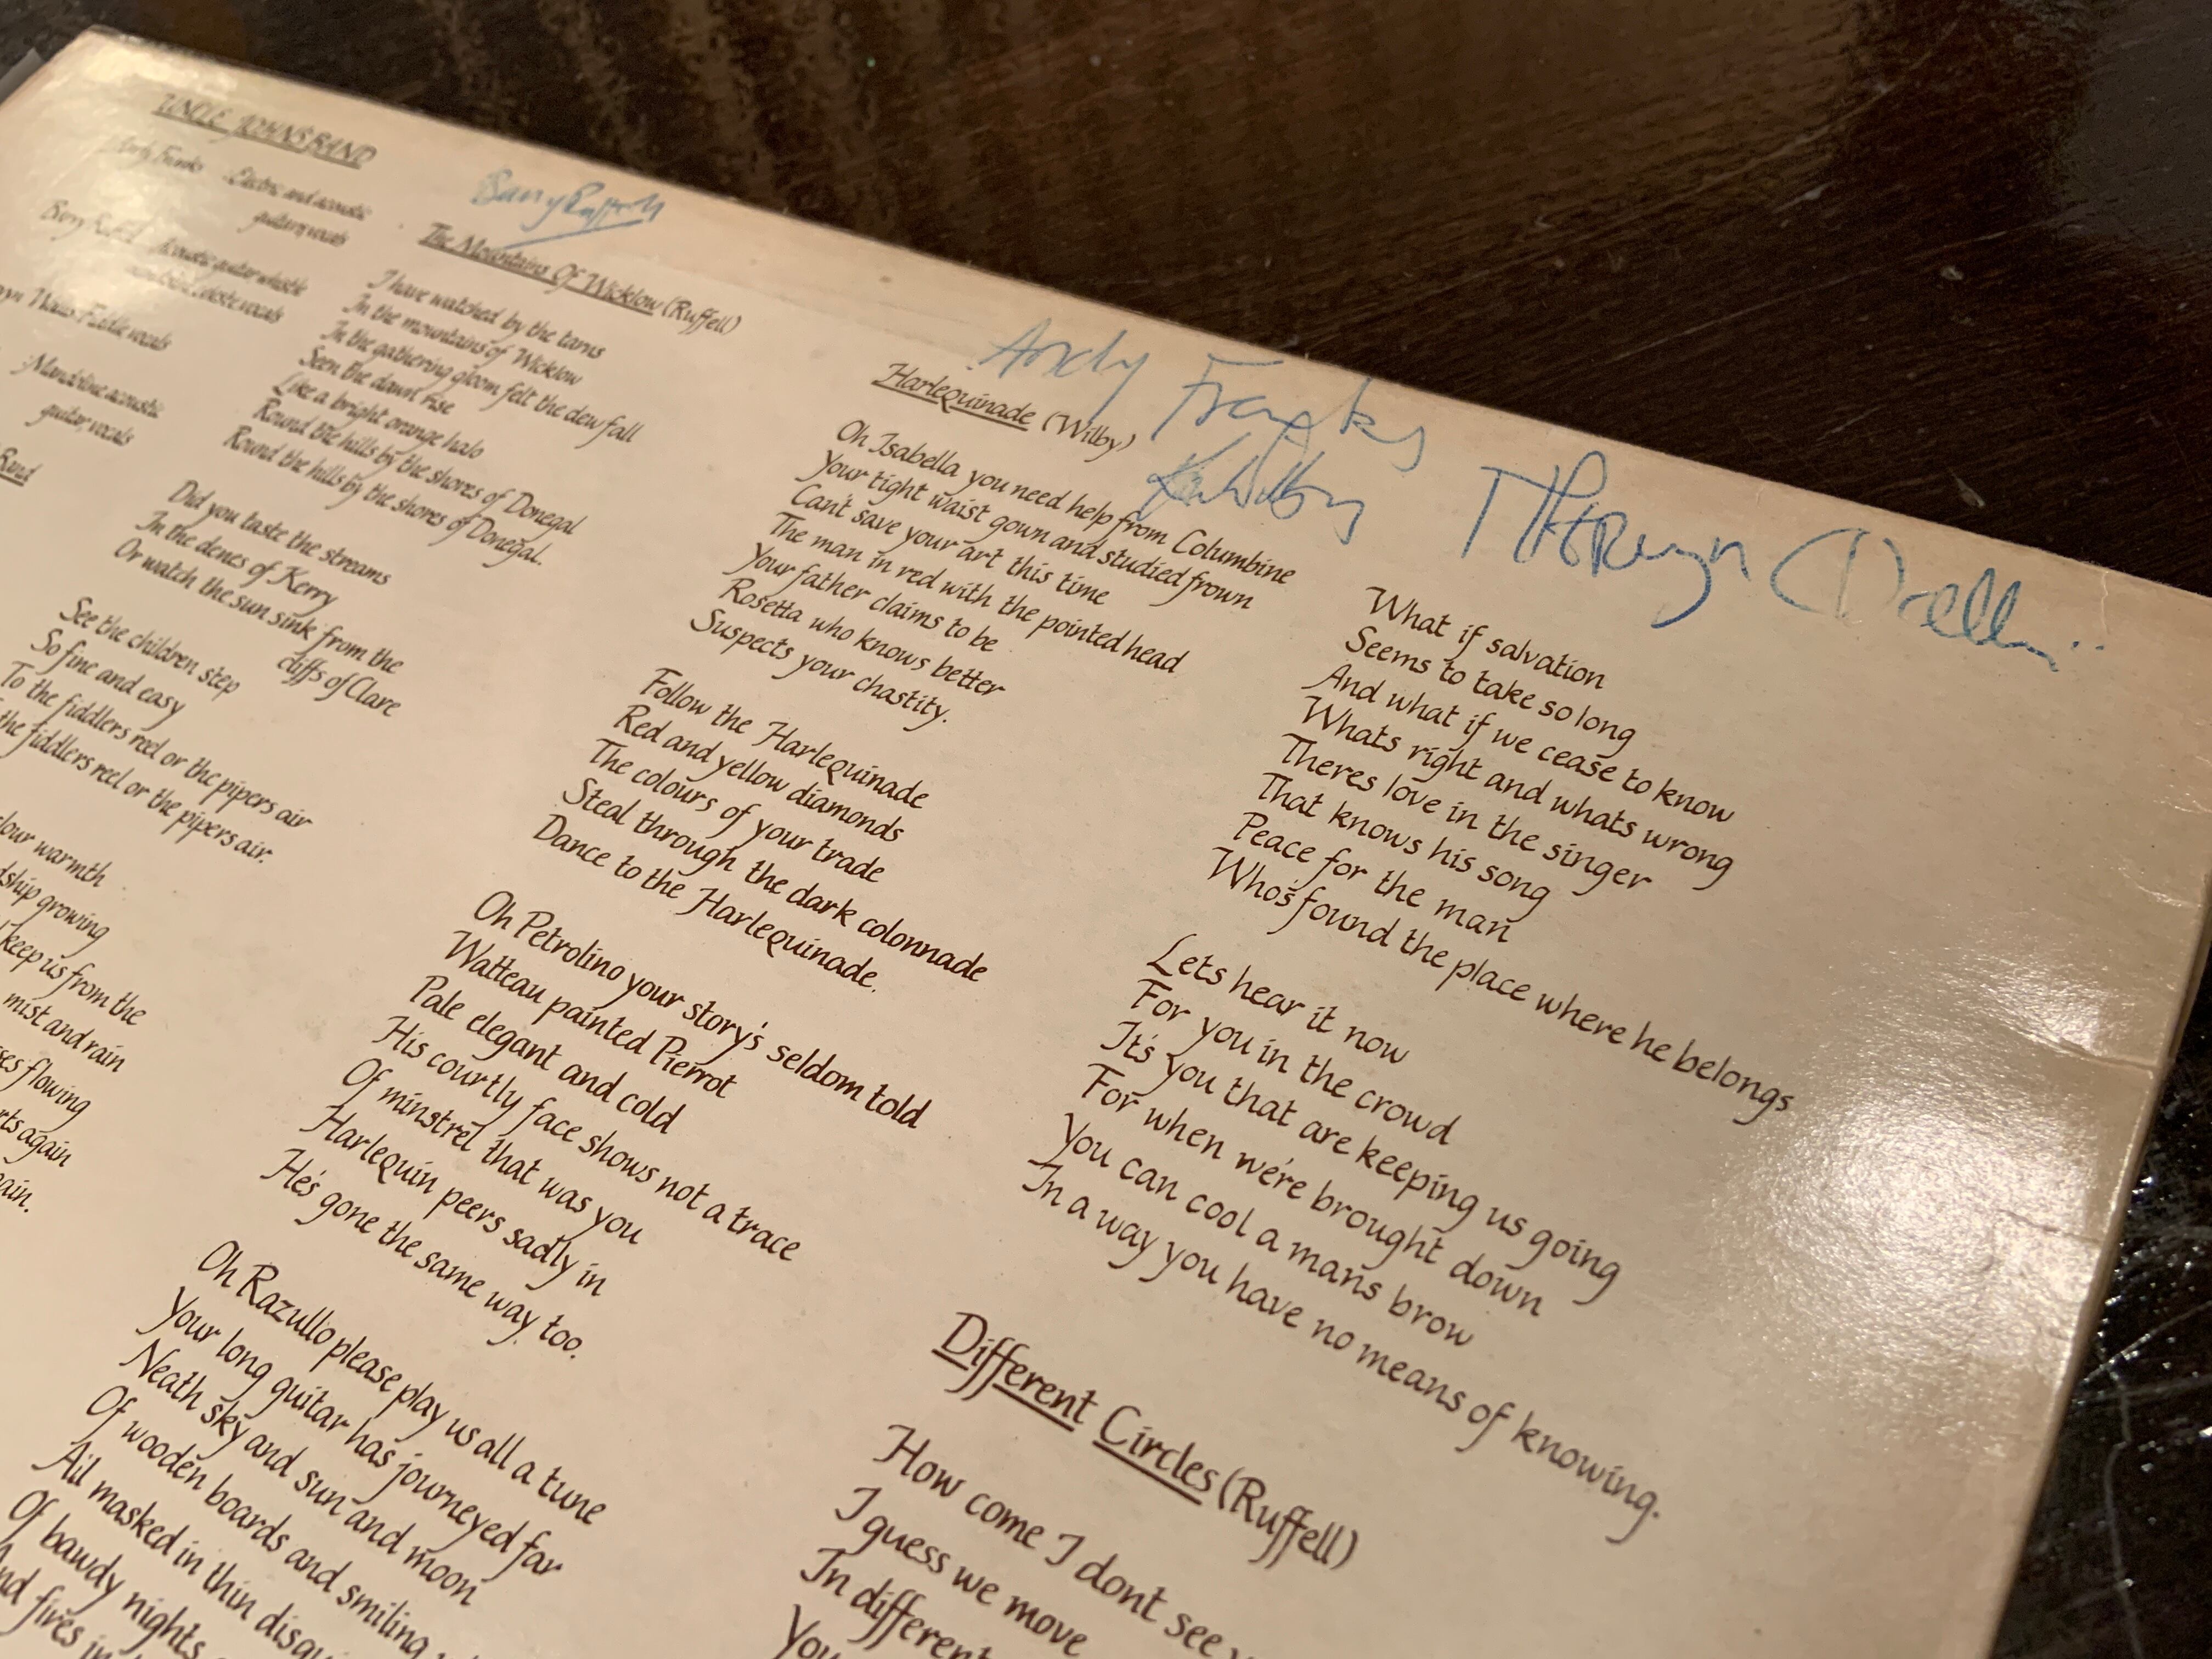 UNCLE JOHNS BAND
Andy Franks Electric and acoustic
guitars vocals
Barry Ruffell Acoustic guitar whistle
vocals
Fiddle vocals
Mandoline acoustic
guitar, vocals
Band
Barry Ruffell
The Mountains Of Wicklow (Ruffell)
I have watched by the tarns
In the mountains of Wicklow
In the gathering gloom felt the dew fall
Seen the dawn rise
Like a bright orange halo
Round the hills by the shores of Donegal
Round the hills by the shores of Donegal.
Did you taste the streams
In the denes of Kerry
Or watch the sun sink from the
cliffs of Clare
See the children step
So fine and easy
To the fiddlers reel or the pipers air
the fiddlers reel or the pipers air.
warmth
growing
keep us from the
mist and rain
flowing
again
Andy Franks
Harlequinade (Wilby)
Oh Isabella you need help from Columbine
Your tight waist gown and studied frown
Can't save your art this time
The man in red with the pointed head
Your father claims to be
Rosetta who knows better
Suspects your chastity.
Follow the Harlequinade
Red and yellow diamonds
The colours of your trade
Steal through the dark colonnade
Dance to the Harlequinade.
Oh Petrolino your story's seldom told
Watteau painted Pierrot
Pale elegant and cold
His courtly face shows not a trace
Of minstrel that was you
Harlequin peers sadly in
He's gone the same way too.
Oh Razullo please play us all a tune
Your long guitar has journeyed far
Neath sky and sun and moon
Of wooden boards and smiling
All masked in thin
Of bawdy nights
fires in
Wilby
What if salvation
Seems to take so long
And what if we cease to know
Whats right and whats wrong
Theres love in the singer
That knows his song
Peace for the man
Who's found the place where he belongs
Lets hear it now
For you in the crowd
It's you that are keeping us going
For when we're brought down
You can cool a man's brow
In a way you have no means of knowing.
Different Circles (Ruffell)
How come I dont see
I guess we move
In different
You